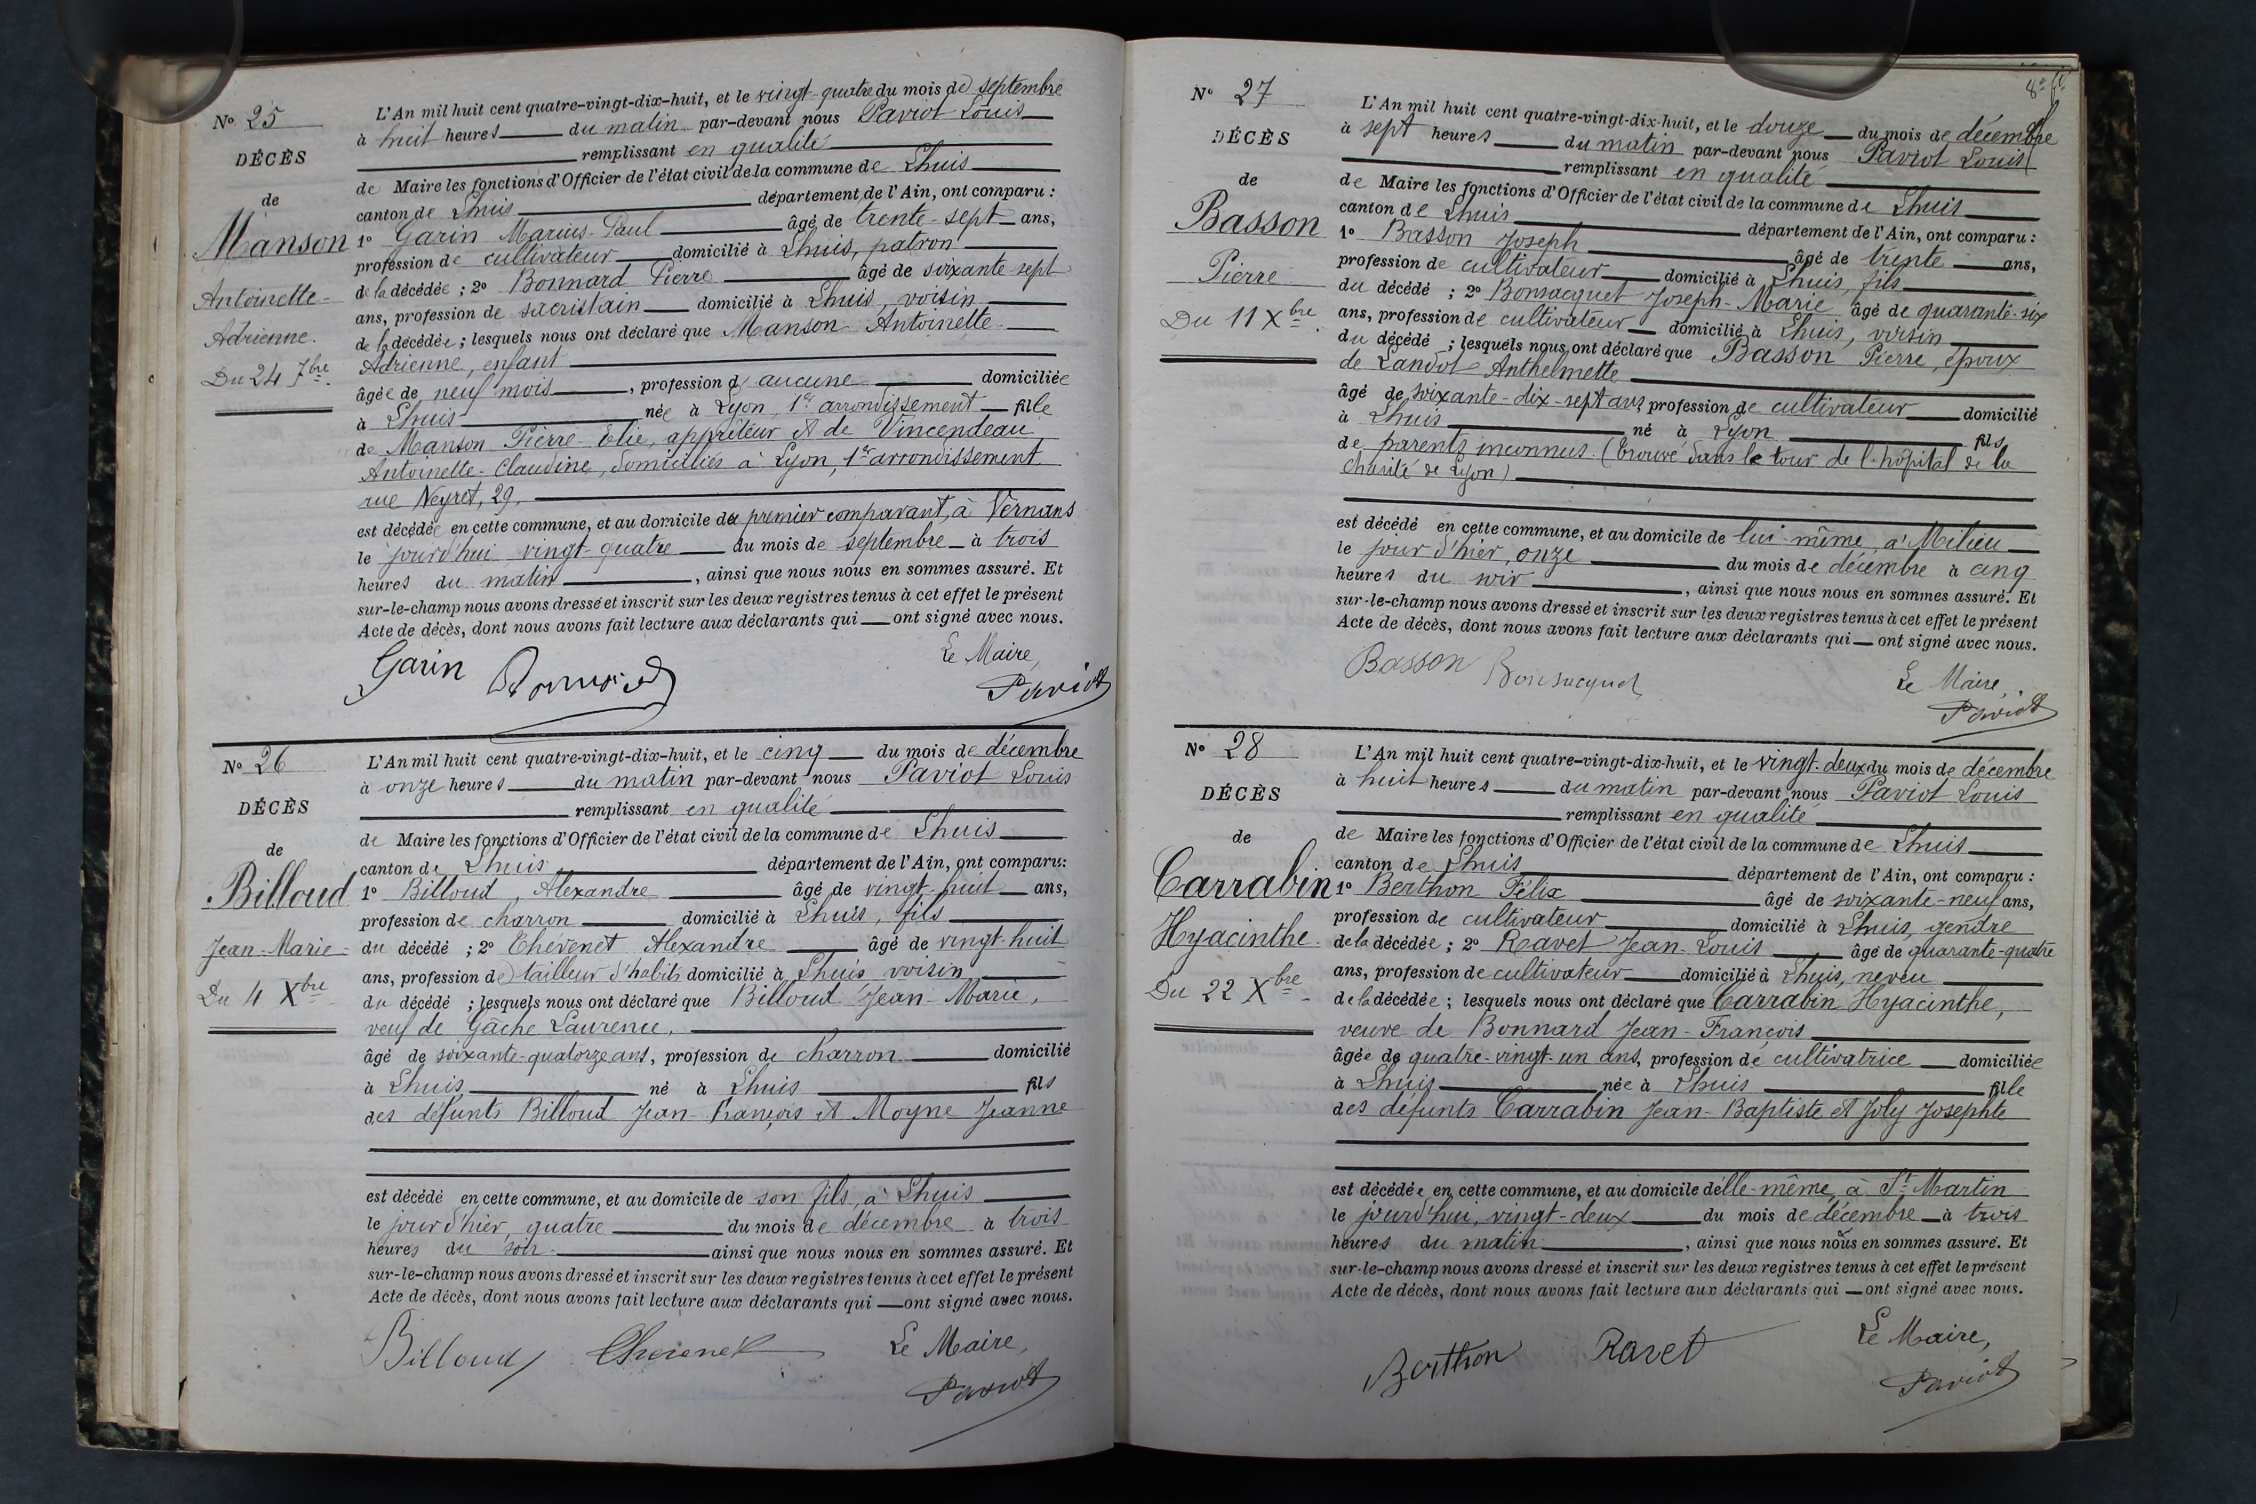 N° 25
DÉCÈS
de
Manson
Antoinette-
Adrienne.
Du 24 7bre.
L'An mil huit cent quatre-vingt-dix-huit, et le vingt-quatre du mois de septembre
à huit heures du matin par-devant nous Paviot Louis
remplissant en qualité
de Maire les fonctions d'Officier de l'état civil de la commune de Lhuis
canton de Lhuis département de l'Ain, ont comparu :
1° Garin Marius-Paul âgé de trente-sept ans,
profession de cultivateur domicilié à Lhuis, patron
de la décédée ; 2° Bonnard Pierre âgé de soixante-sept
ans, profession de sacristain domicilié à Lhuis, voisin
de la décédée ; lesquels nous ont déclaré que Manson Antoinette-
Adrienne, enfant
âgée de neuf mois, profession d aucune domiciliée
à Lhuis née à Lyon, 1er arrondissement fille
de Manson Pierre-Elie, appréteur et de Vincendeau
Antoinette-Claudine, domiciliés à Lyon, 1er arrondissement
rue Neyret, 29,
est décédée en cette commune, et au domicile du premier comparant, à Vernans
le jourd'hui vingt-quatre du mois de septembre à trois
heures du matin, ainsi que nous nous en sommes assuré. Et
sur-le-champ nous avons dressé et inscrit sur les deux registres tenus à cet effet le présent
Acte de décès, dont nous avons fait lecture aux déclarants qui ont signé avec nous.
Le Maire,
Garin Bonnard Paviot
N° 26
DÉCÈS
de
Billoud
Jean-Marie
Du 4 Xbre
L'An mil huit cent quatre-vingt-dix-huit, et le cinq du mois de décembre
à onze heures du matin par-devant nous Paviot Louis
remplissant en qualité
de Maire les fonctions d'Officier de l'état civil de la commune de Lhuis
canton de Lhuis département de l'Ain, ont comparu:
1° Billoud, Alexandre âgé de vingt-huit ans,
profession de charron domicilié à Lhuis, fils
du décédé ; 2° Chevenet Alexandre âgé de vingt-huit
ans, profession de tailleur d'habits domicilié à Lhuis voisin
du décédé ; lesquels nous ont déclaré que Billoud Jean-Marie,
veuf de Gâche Laurence,
âgé de soixante-quatorze ans, profession de charron domicilié
à Lhuis né à Lhuis fils
des défunts Billoud Jean-François et Moyne Jeanne
est décédé en cette commune, et au domicile de son fils, à Lhuis
le jour d'hier, quatre du mois de décembre à trois
heures du soir ainsi que nous nous en sommes assuré. Et
sur-le-champ nous avons dressé et inscrit sur les deux registres tenus à cet effet le présent
Acte de décès, dont nous avons fait lecture aux déclarants qui ont signé avec nous.
Billoud Chevenet Le Maire,
Paviot
N° 27
DÉCÈS
de
Basson
Pierre
Du 11 Xbre.
L'An mil huit cent quatre-vingt-dix-huit, et le douze du mois de décembre
à sept heures du matin par-devant nous Paviot Louis
remplissant en qualité
de Maire les fonctions d'Officier de l'état civil de la commune de Lhuis
canton de Lhuis département de l'Ain, ont comparu :
1° Basson Joseph âgé de trente ans,
profession de cultivateur domicilié à Lhuis, fils
du décédé ; 2° Bonsacquet Joseph-Marie âgé de quarante-six
ans, profession de cultivateur domicilié à Lhuis, voisin
du décédé ; lesquels nous ont déclaré que Basson Pierre, époux
de Landot Anthelmette
âgé de soixante-dix-sept ans, profession de cultivateur domicilié
à Lhuis né à Lyon fils
de parents inconnus. (trouvé dans le tour de l'hôpital de la
charité de Lyon)
est décédé en cette commune, et au domicile de lui-même, à Milieu
le jour d'hier, onze du mois de décembre à cinq
heures du soir, ainsi que nous nous en sommes assuré. Et
sur-le-champ nous avons dressé et inscrit sur les deux registres tenus à cet effet le présent
Acte de décès, dont nous avons fait lecture aux déclarants qui ont signé avec nous.
Basson Bonsacquet Le Maire,
Paviot
N° 28
DÉCÈS
de
Carrabin
Hyacinthe.
Du 22 Xbre
L'An mil huit cent quatre-vingt-dix-huit, et le vingt-deux du mois de décembre
à huit heures du matin par-devant nous Paviot Louis
remplissant en qualité
de Maire les fonctions d'Officier de l'état civil de la commune de Lhuis
canton de Lhuis département de l'Ain, ont comparu :
1° Berthon Félix âgé de soixante-neuf ans,
profession de cultivateur domicilié à Lhuis, gendre
de la décédée ; 2° Ravet Jean-Louis âgé de quarante-quatre
ans, profession de cultivateur domicilié à Lhuis, neveu
de la décédée ; lesquels nous ont déclaré que Carrabin Hyacinthe,
veuve de Bonnard Jean-François
âgée de quatre-vingt-un ans, profession de cultivatrice domiciliée
à Lhuis née à Lhuis fille
des défunts Carrabin Jean-Baptiste et Joly Josephte
est décédée en cette commune, et au domicile d'elle-même, à St Martin
le jourd'hui, vingt-deux du mois de décembre à trois
heures du matin, ainsi que nous nous en sommes assuré. Et
sur-le-champ nous avons dressé et inscrit sur les deux registres tenus à cet effet le présent
Acte de décès, dont nous avons fait lecture aux déclarants qui ont signé avec nous.
Berthon Ravet Le Maire,
Paviot